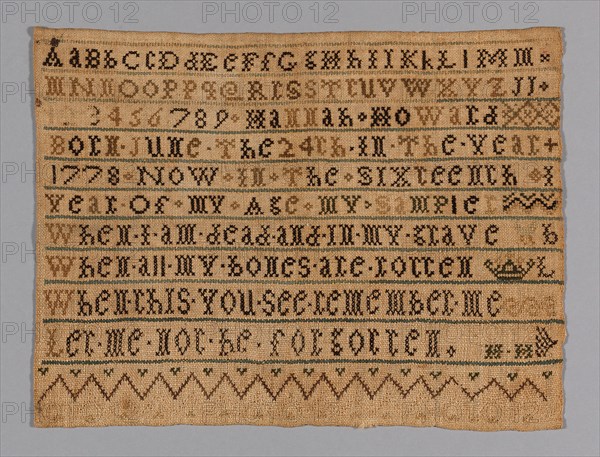 AaBbCcDdEeFfGgHhIiKkLlMM
mNnOoPPqQRrSsTtUVWXYZJJ+
23456789 Hannah HoWard
Born June The 24th in The Year +
1778 NoW in The Sixteenth
Year Of my Age my Sampler
When I am dead and In my grave
When all my bones are rotten
When this You see remember me
Let me not be forgotten.
PHOTO12